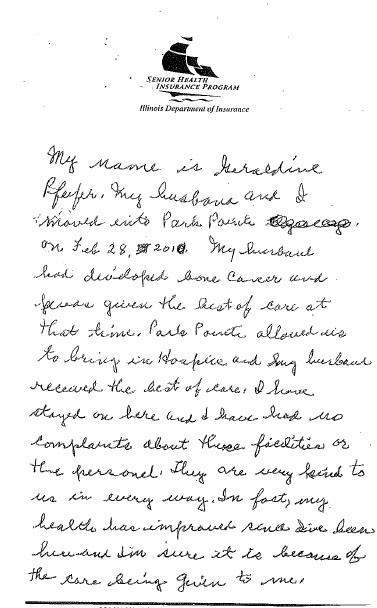 SENIOR HEALTH
INSURANCE PROGRAM
Illinois Department of Insurance
My name is Geraldine
Pfeifer. My husband and I
moved into Park Pointe
on Feb 28, 2010. My husband
had developed bone cancer and
was given the best of care at
that time. Park Pointe allowed us
to bring in Hospice and my husband
received the best of care. I have
stayed on here and I have had no
complaints about these facilities or
the personel. They are very kind to
us in every way. In fact, my
health has improved since I've been
here and I'm sure it is because of
the care being given to me.